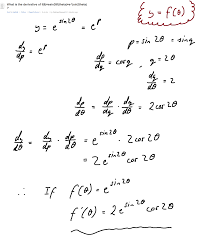 What is the derivative of
y = f(θ)
y = e^{sin 2θ} = e^p
p = sin 2θ = sin q
dy/dp = e^p
dp/dq = cos q , q = 2θ
dq/dθ = 2
dp/dθ = dp/dq · dq/dθ = 2 cos 2θ
dy/dθ = dy/dp · dp/dθ = e^{sin 2θ} · 2 cos 2θ
= 2 e^{sin 2θ} cos 2θ
∴ If f(θ) = e^{sin 2θ}
f'(θ) = 2 e^{sin 2θ} cos 2θ